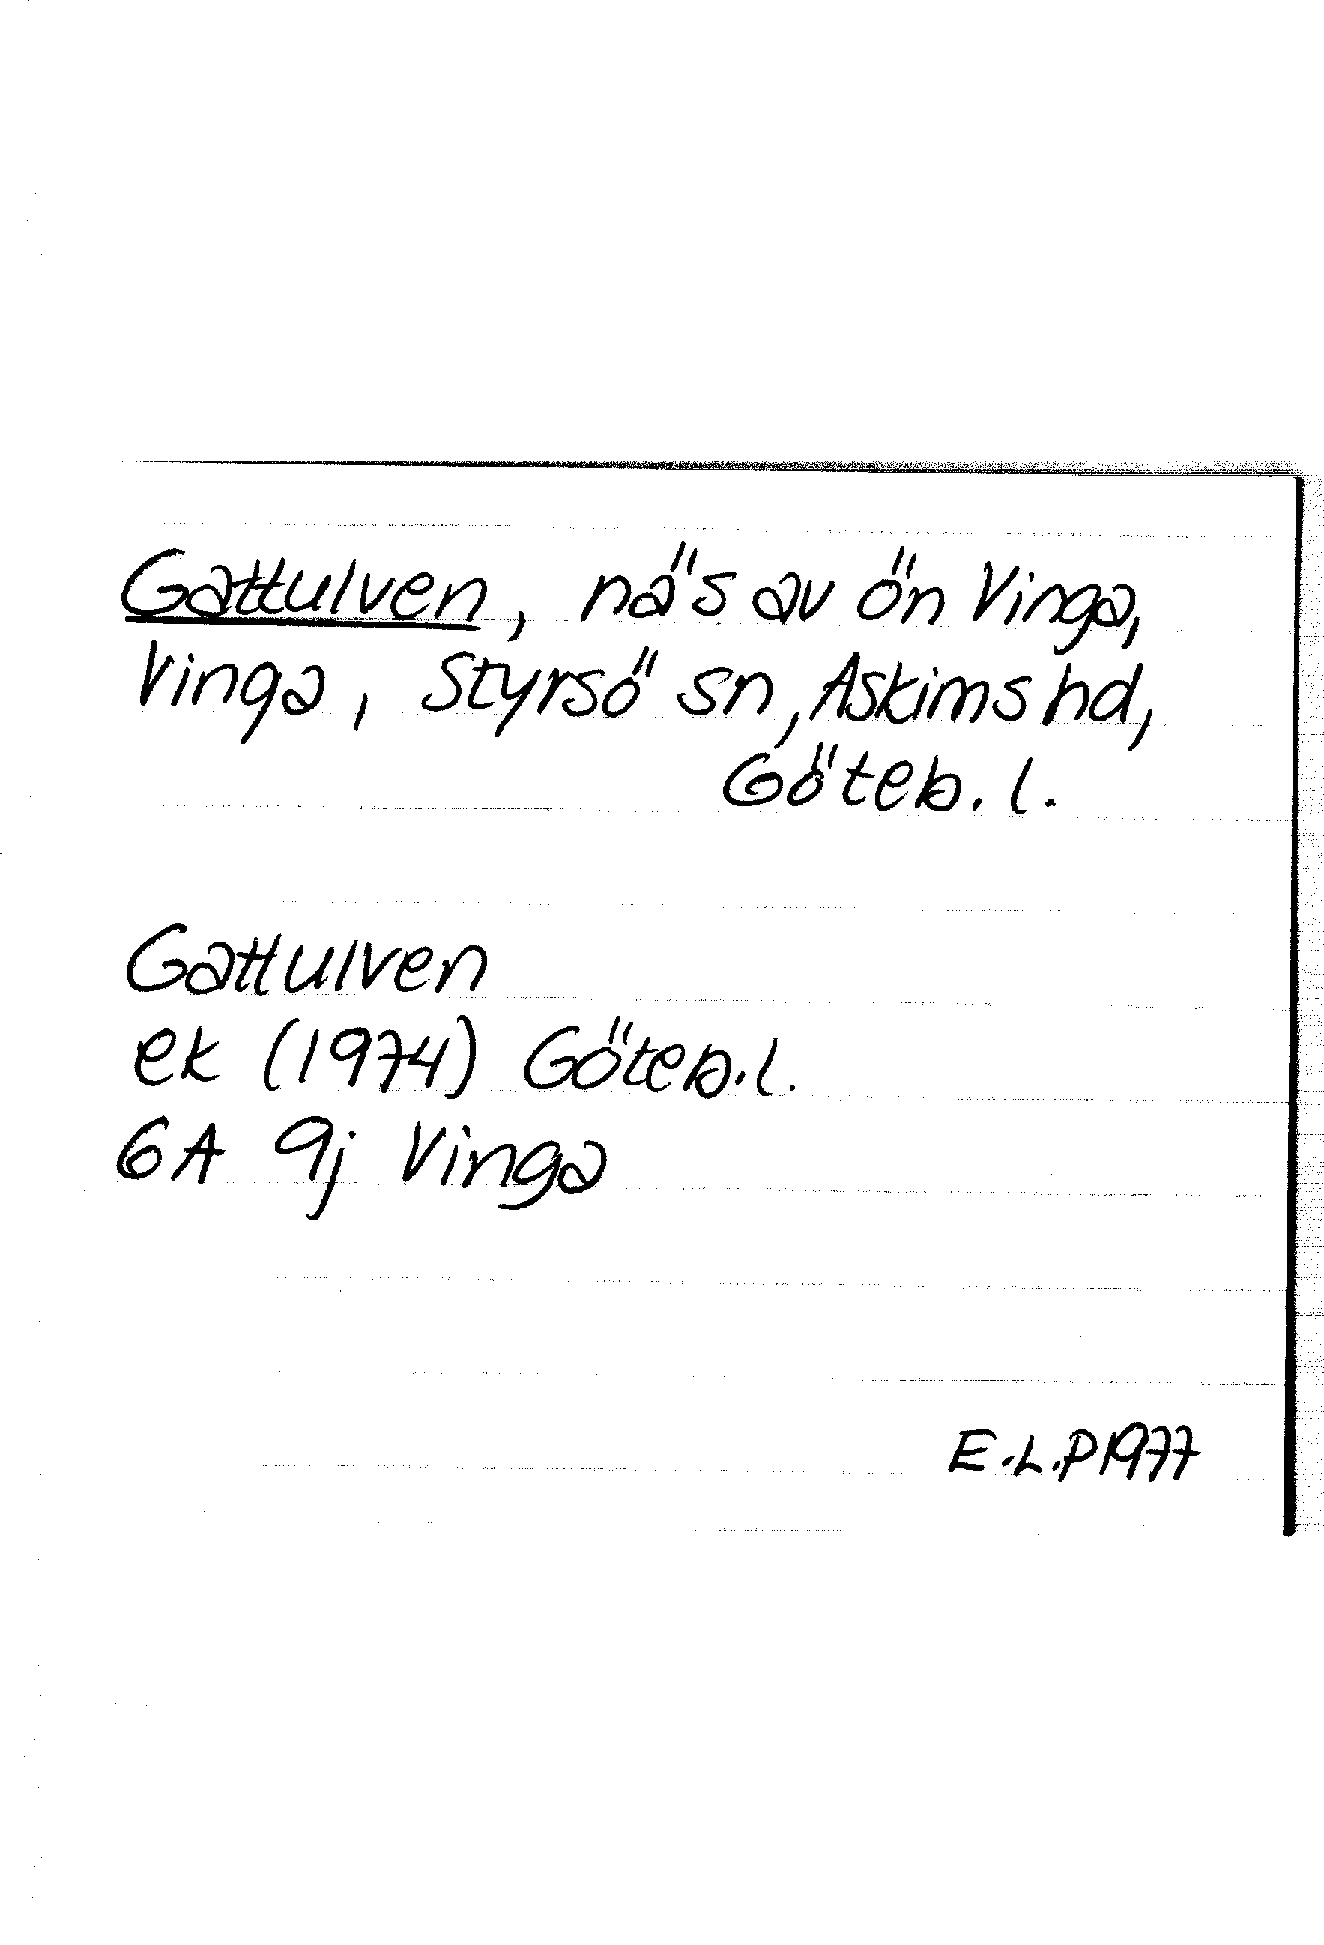 Gattulven, näs av ön Vinga,
Vinga, Styrsö sn, Askims hd,
Göteb. l.
Gattulven
ek (1974) Göteb. l.
6A 9j Vinga
E.L.P 1977